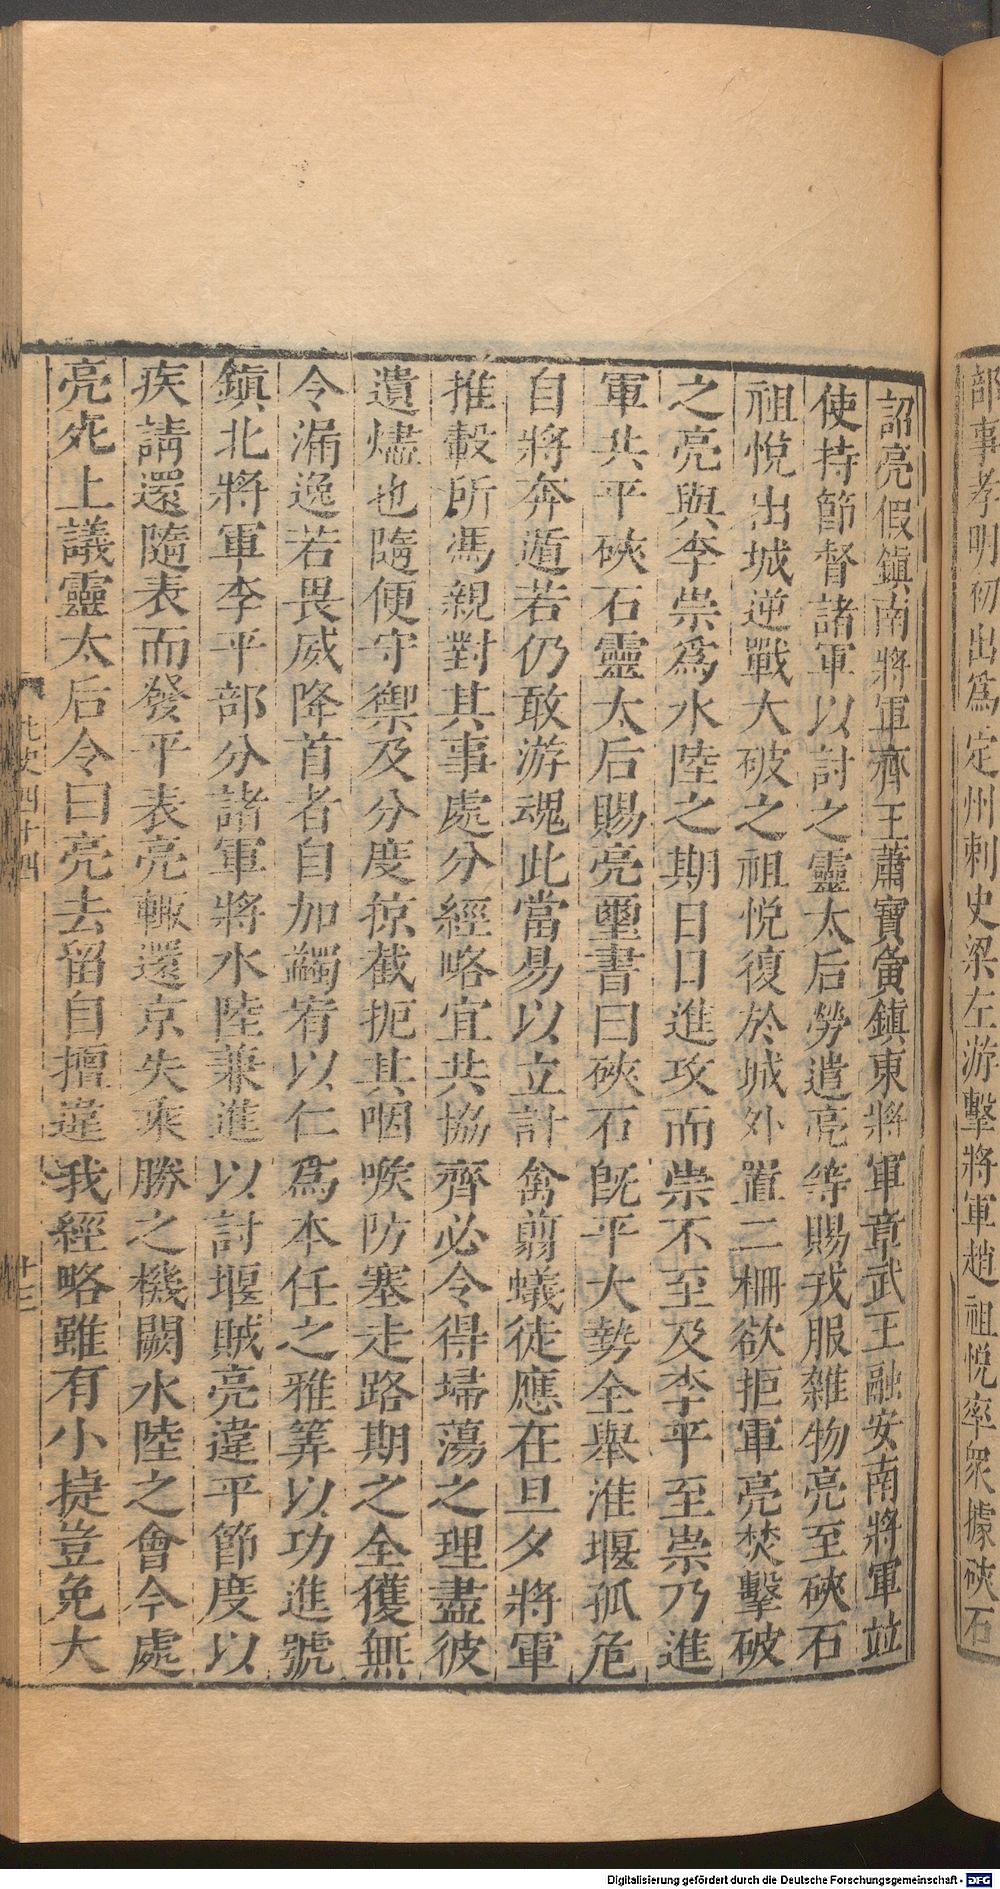 部事孝明初出爲定州刺史梁左游擊將軍趙祖悅率衆據硤石
詔亮假鎮南將軍齊王蕭寶夤鎮東將軍章武王融安南將軍竝
使持節督諸軍以討之靈太后勞遣亮等賜戎服雜物亮至硤石
祖悅出城逆戰大破之祖悅復於城外置二柵欲拒軍亮焚擊破
之亮與李崇爲水陸之期日日進攻而崇不至及李平至崇乃進
軍共平硤石靈太后賜亮璽書曰硤石旣平大勢全舉淮堰孤危
自將奔遁若仍敢游魂此當易以立計禽翦蟻徒應在旦夕將軍
推轂所馮親對其事處分經略宜共協齊必令得埽蕩之理盡彼
遺燼也隨便守禦及分度掠截扼其咽喉防塞走路期之全獲無
令漏逸若畏威降首者自加蠲宥以仁爲本任之雅筭以功進號
鎮北將軍李平部分諸軍將水陸兼進以討堰賊亮違平節度以
疾請還隨表而發平表亮輙還京失乘勝之機闕水陸之會今處
亮死上議靈太后令曰亮去留自擅違我經略雖有小捷豈免大
北史四十四
十三
Digitalisierung gefördert durch die Deutsche Forschungsgemeinschaft - DFG